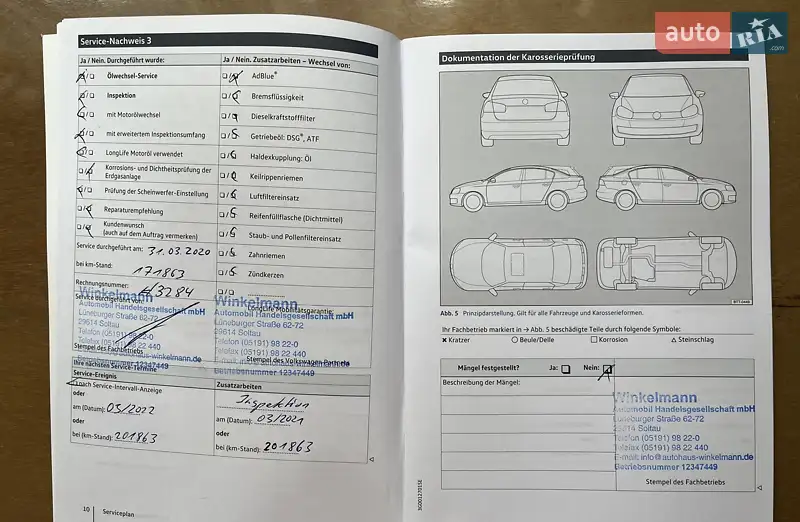 auto RIA.com
Service-Nachweis 3
Ja / Nein. Durchgeführt wurde:
Ölwechsel-Service
Inspektion
mit Motorölwechsel
mit erweitertem Inspektionsumfang
LongLife Motoröl verwendet
Korrosions- und Dichtheitsprüfung der Erdgasanlage
Prüfung der Scheinwerfer-Einstellung
Reparaturempfehlung
Kundenwunsch
(auch auf dem Auftrag vermerken)
Service durchgeführt am: 31.03.2020
bei km-Stand: 171863
Rechnungsnummer: 43284
Service durchgeführt von:
Winkelmann
Automobil Handelsgesellschaft mbH
Lüneburger Straße 62-72
29614 Soltau
Telefon (05191) 98 22-0
Telefax (05191) 98 22 440
Stempel des Fachbetriebs
Ja / Nein. Zusatzarbeiten – Wechsel von:
AdBlue®
Bremsflüssigkeit
Dieselkraftstofffilter
Getriebeöl: DSG®, ATF
Haldexkupplung: Öl
Keilrippenriemen
Luftfiltereinsatz
Reifenfüllflasche (Dichtmittel)
Staub- und Pollenfiltereinsatz
Zahnriemen
Zündkerzen
LongLife Mobilitätsgarantie:
Winkelmann
Automobil Handelsgesellschaft mbH
Lüneburger Straße 62-72
29614 Soltau
Telefon (05191) 98 22-0
Telefax (05191) 98 22 440
E-mail: info@autohaus-winkelmann.de
Betriebsnummer 12347449
Stempel des Volkswagen Partners
Ihre nächsten Service-Termine
Service-Ereignis
nach Service-Intervall-Anzeige
oder
am (Datum): 03/2022
oder
bei (km-Stand): 201863
Zusatzarbeiten
Inspektion
am (Datum): 03/2021
oder
bei (km-Stand): 201863
10 Serviceplan
Dokumentation der Karosserieprüfung
BTT-0448
Abb. 5 Prinzipdarstellung. Gilt für alle Fahrzeuge und Karosserieformen.
Ihr Fachbetrieb markiert in → Abb. 5 beschädigte Teile durch folgende Symbole:
Kratzer Beule/Delle Korrosion Steinschlag
Mängel festgestellt? Ja: Nein:
Beschreibung der Mängel:
Winkelmann
Automobil Handelsgesellschaft mbH
Lüneburger Straße 62-72
29614 Soltau
Telefon (05191) 98 22-0
Telefax (05191) 98 22 440
E-mail: info@autohaus-winkelmann.de
Betriebsnummer 12347449
Stempel des Fachbetriebs